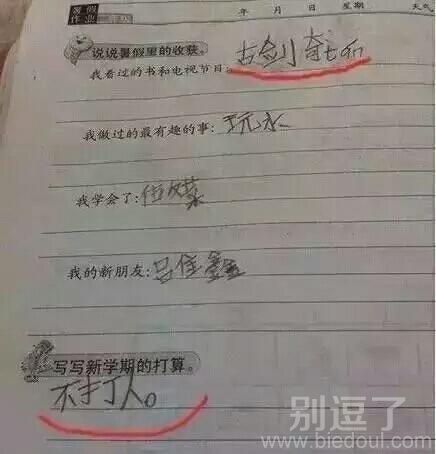 暑假
作业
年 月 日 星期 天气
说说暑假里的收获。
我看过的书和电视节目:古剑奇
我做过的最有趣的事:玩水
我学会了:
我的新朋友:吕佳鑫
写写新学期的打算。
不打人。
别逗了
www.biedoul.com